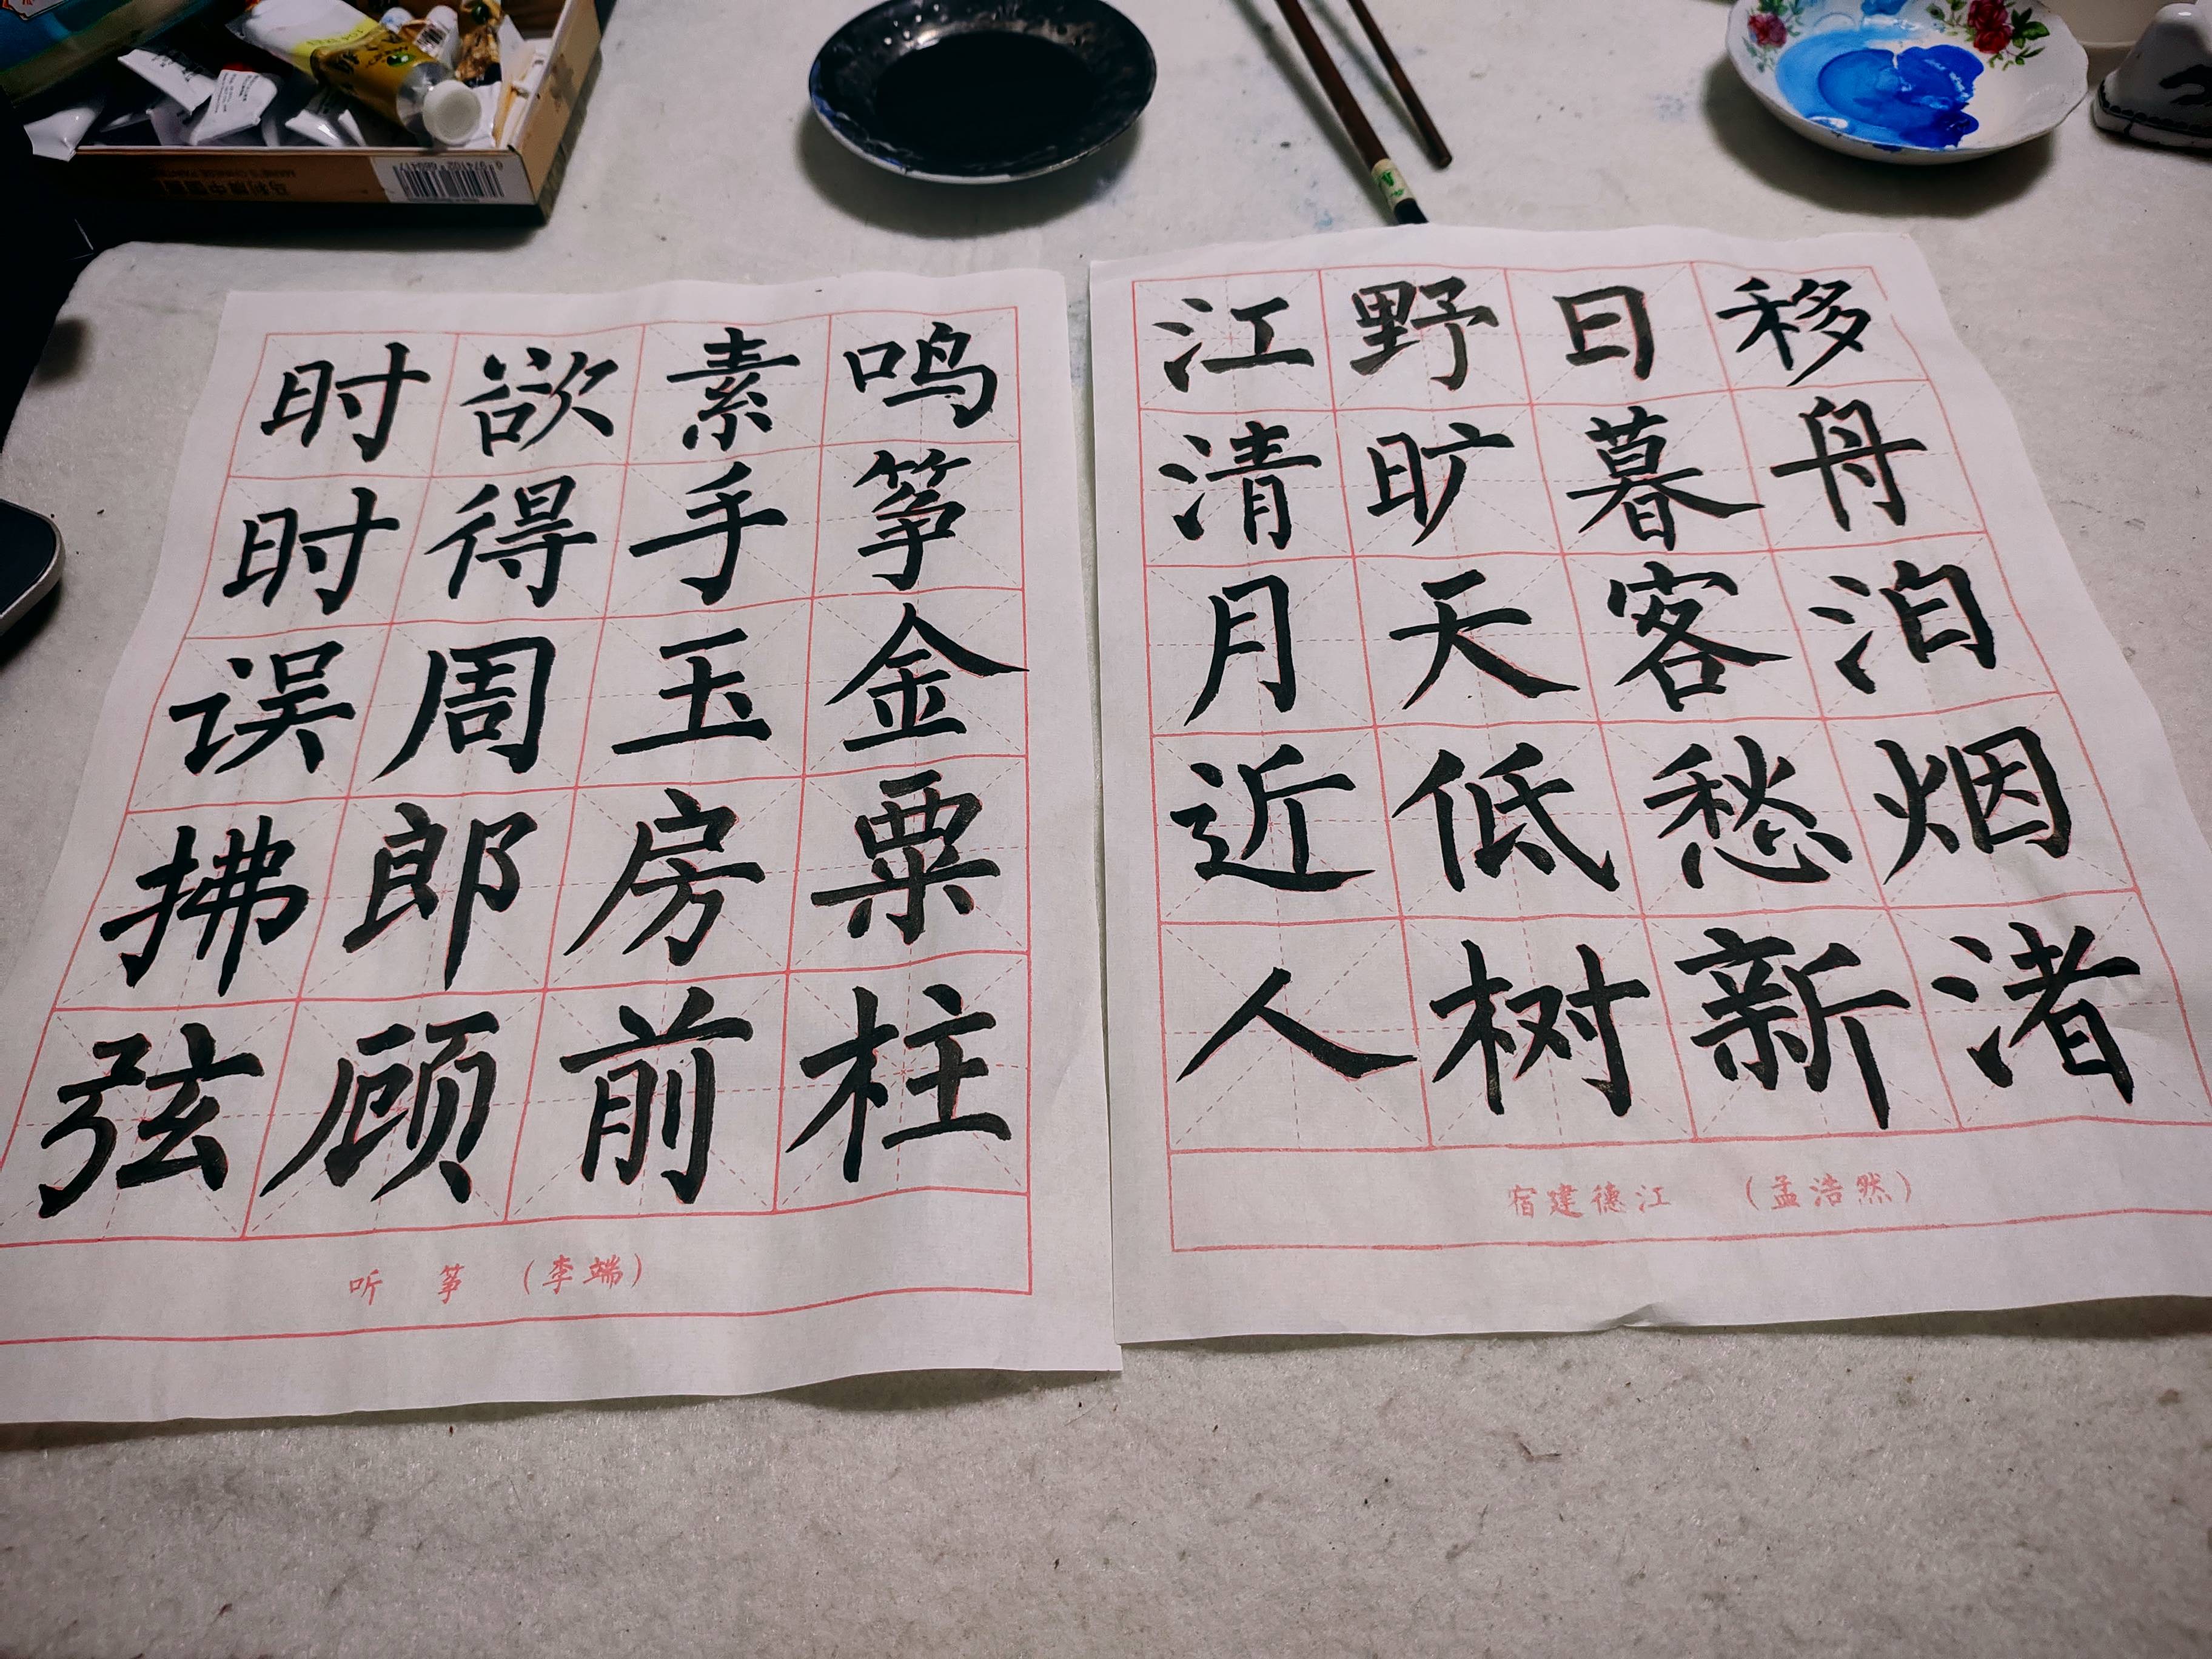 移舟泊烟渚
日暮客愁新
野旷天低树
江清月近人
宿建德江 （孟浩然）
鸣筝金粟柱
素手玉房前
欲得周郎顾
时时误拂弦
听 筝 （李端）